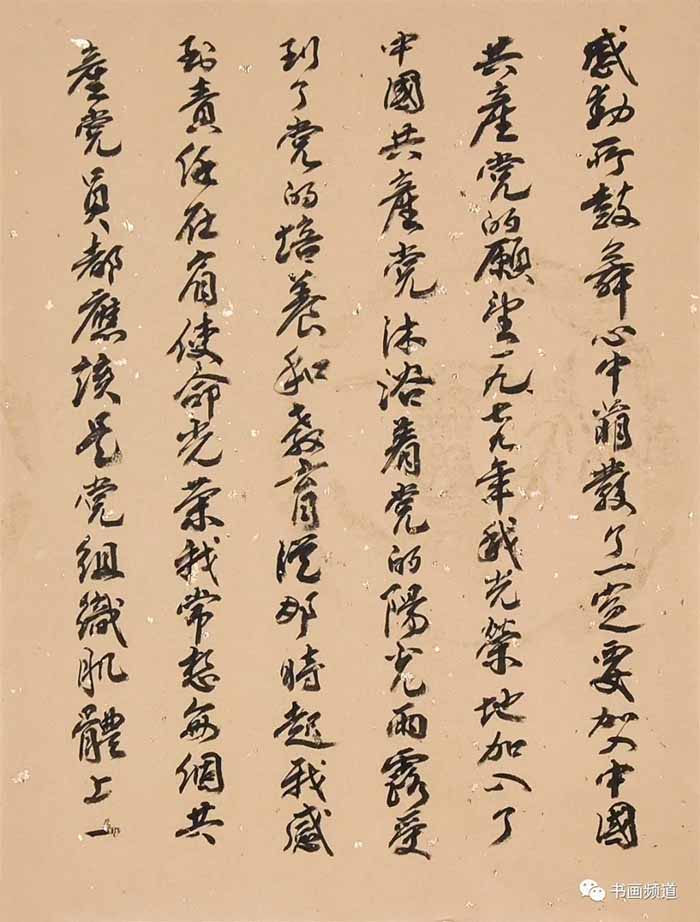 感動所鼓舞心中萌發了一定要加入中國
共產党的願望一九七九年我光榮地加入了
中國共產党沐浴着党的陽光雨露受
到了党的培養和教育從那時起我感
到責任在肩使命光荣我常想每個共
產党員都應該是党組織肌體上一
书画频道